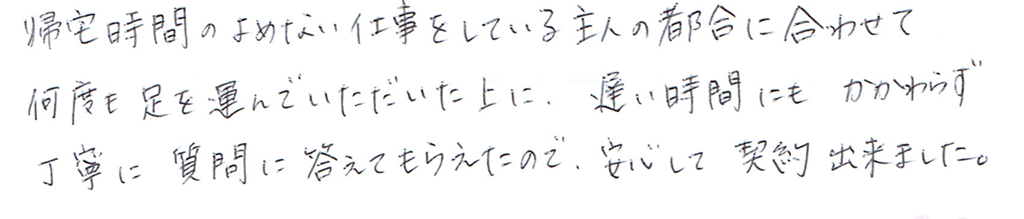 帰宅時間のよめない仕事をしている主人の都合に合わせて
何度も足を運んでいただいた上に、遅い時間にもかかわらず
丁寧に質問に答えてもらえたので、安心して契約出来ました。